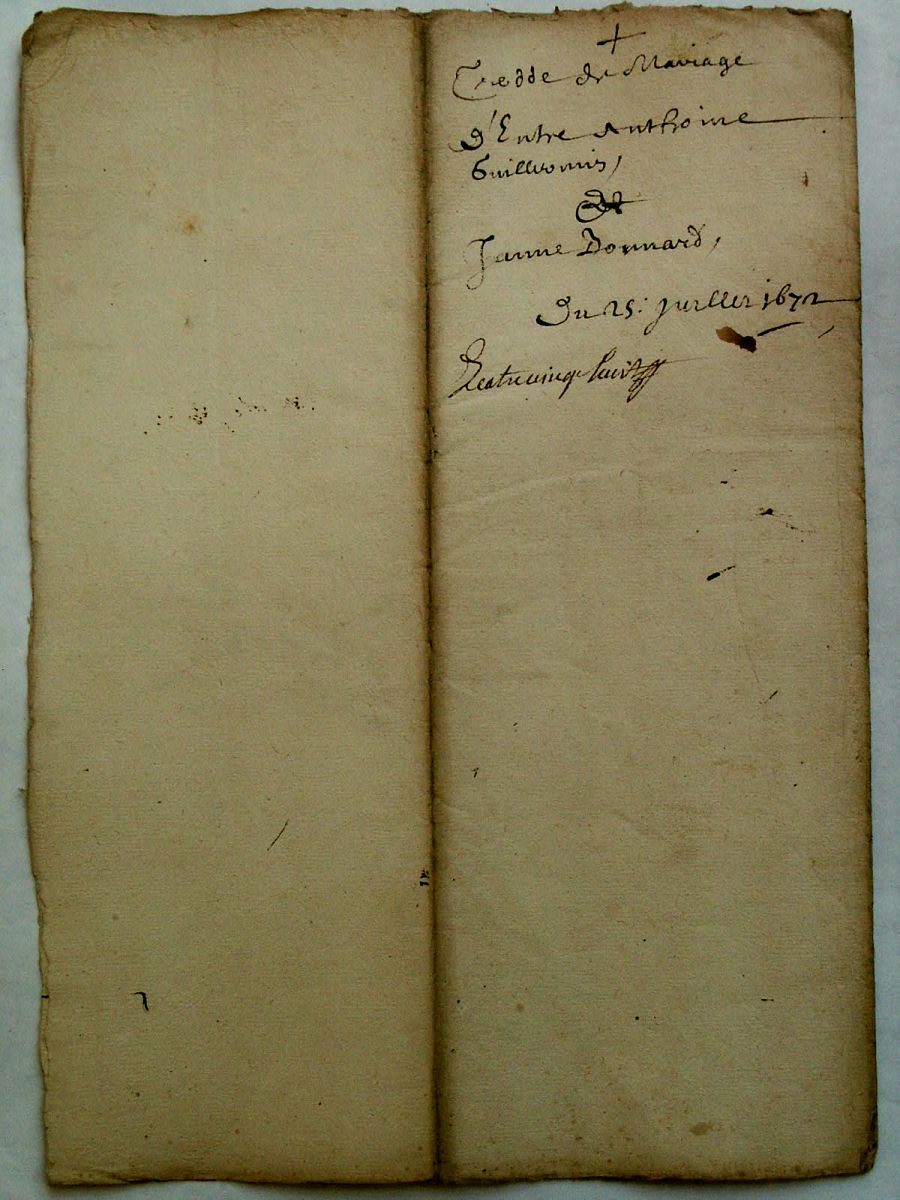 +
Tredde de Mariage
D'Entre Anthoine
Guilleromin,
Et
Janne Bonnard,
Du 25: Juillet 1672
Quatrevingt huit